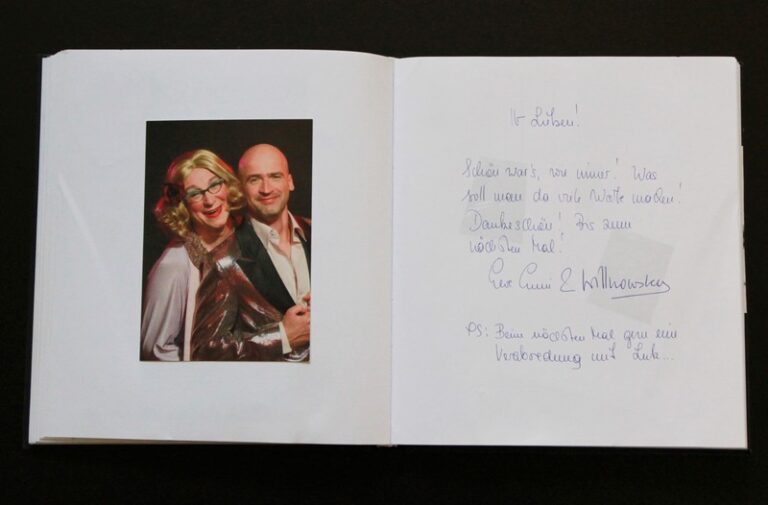 Ihr Lieben!
Schön war's, wie immer! Was
soll man da viele Worte machen!
Dankeschön! Bis zum
nächsten Mal!
Eure
PS: Beim nächsten Mal gern eine
Verabredung mit